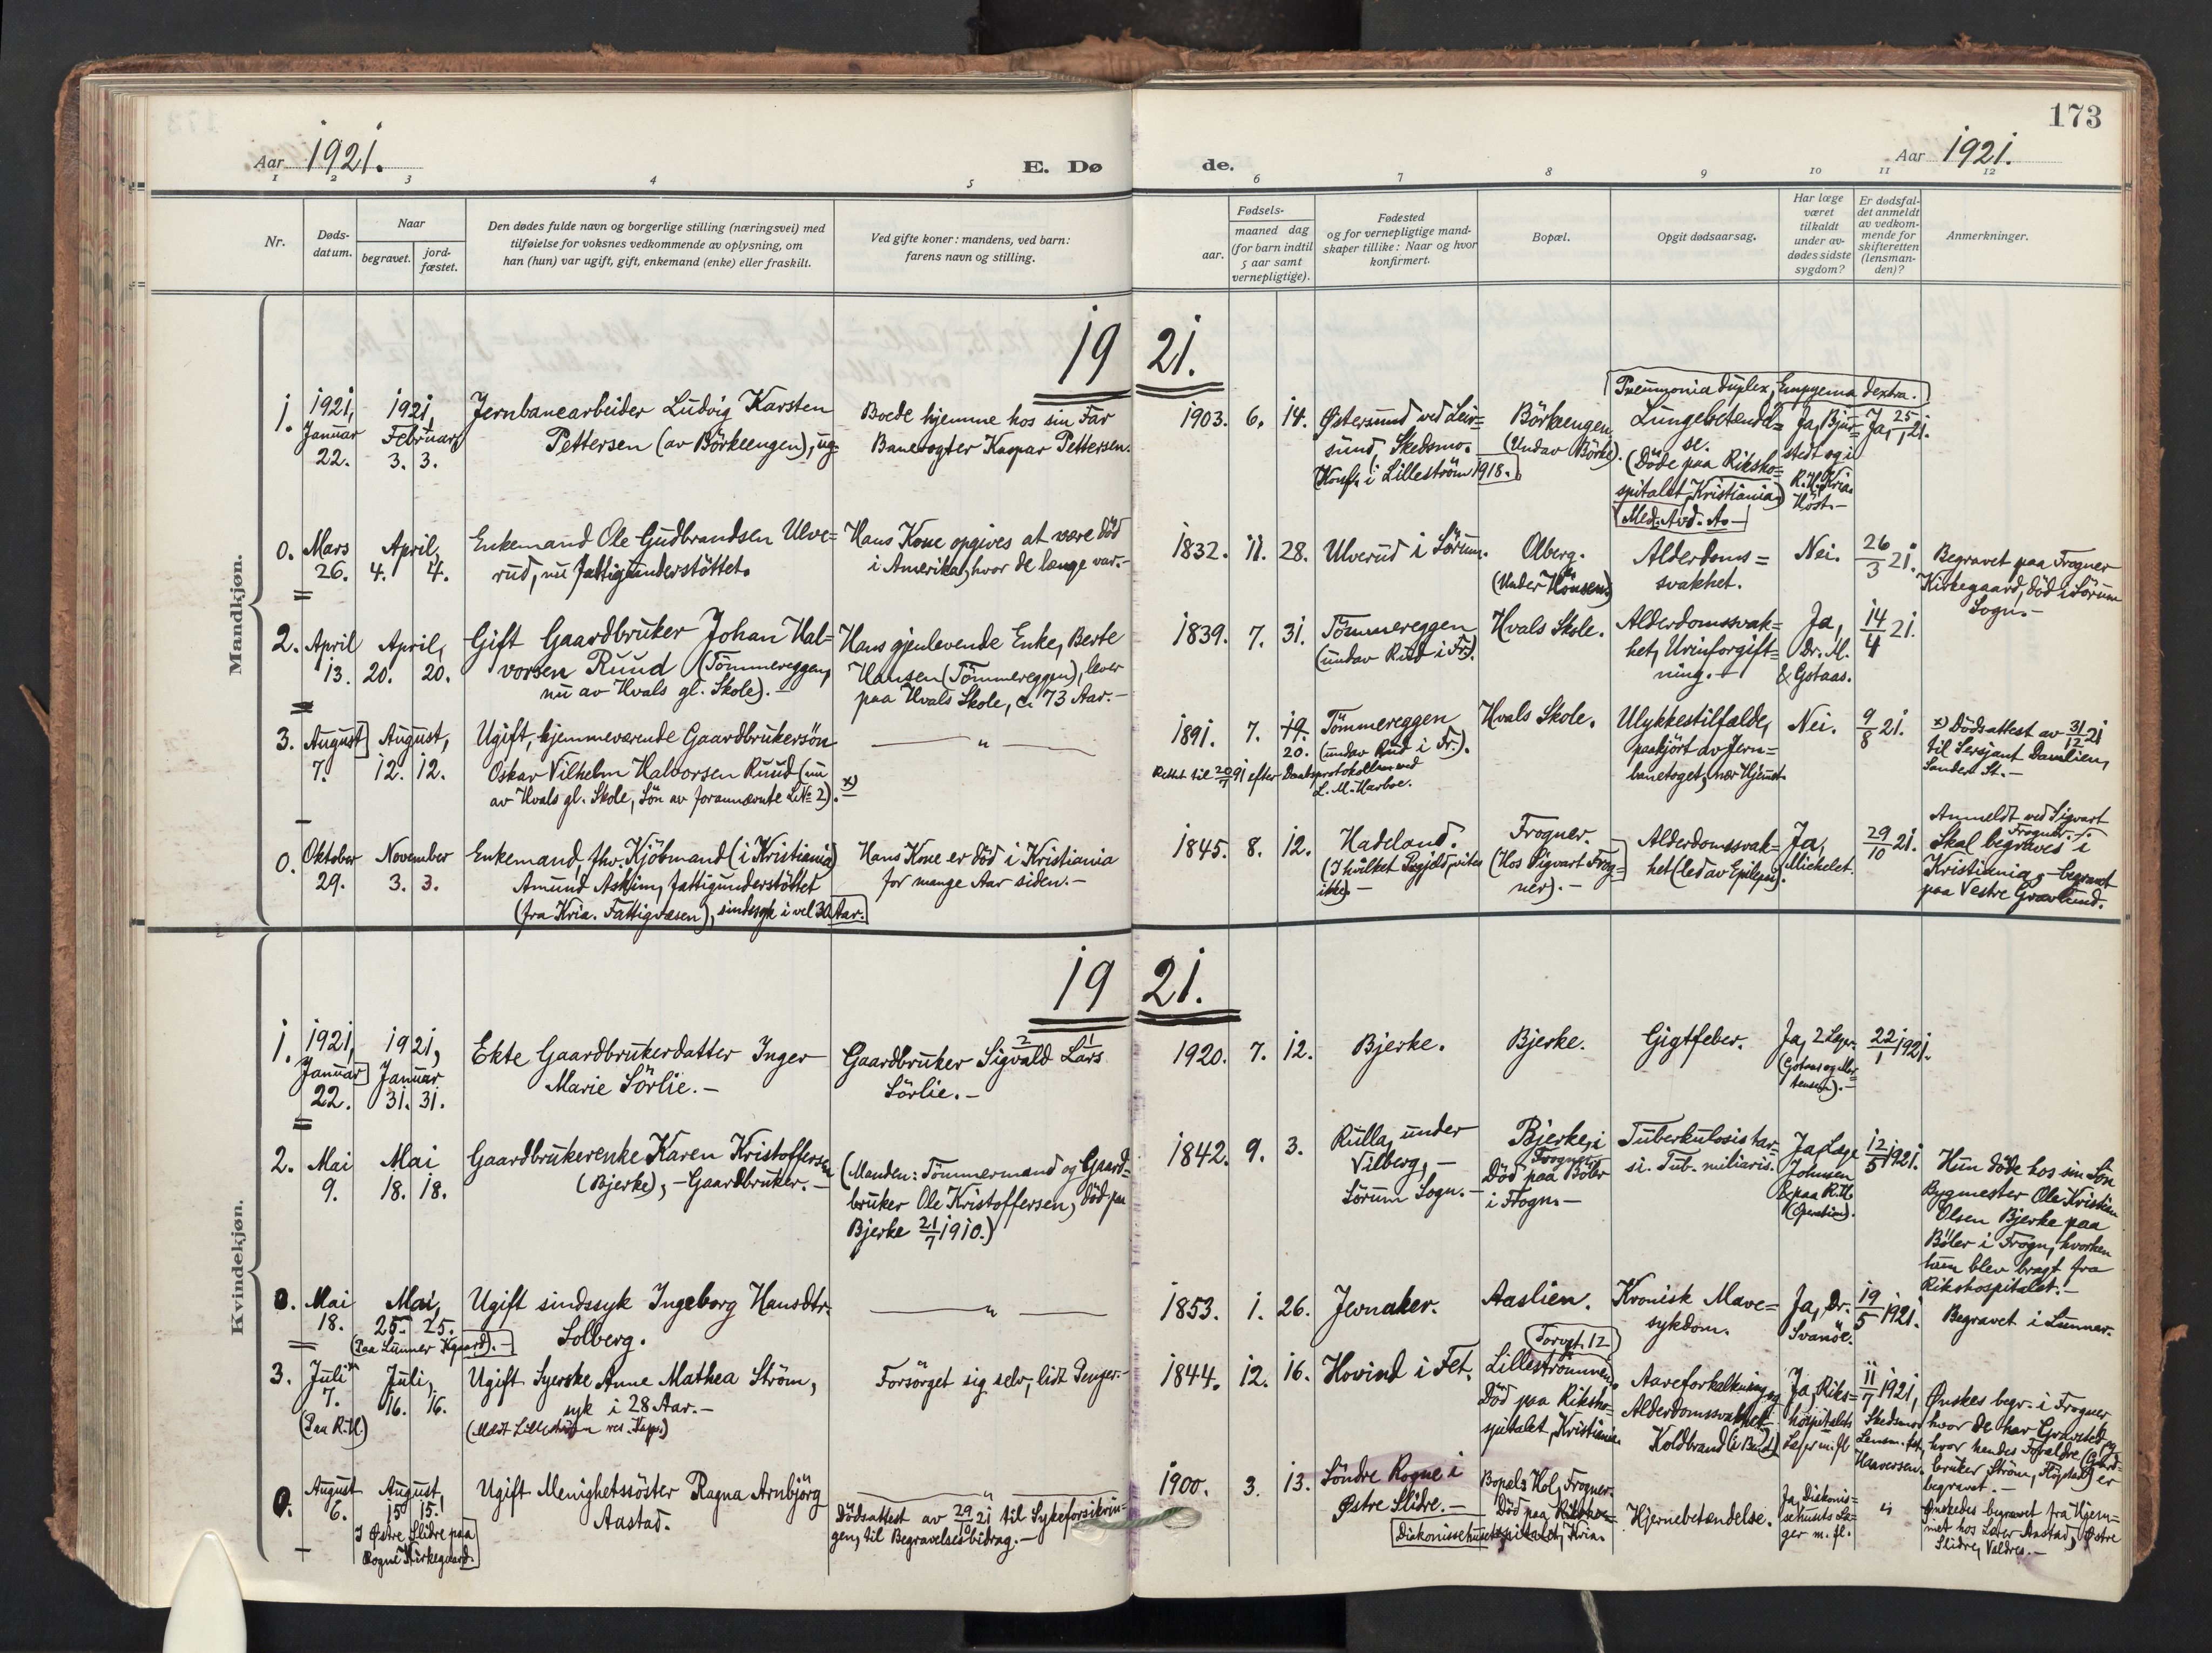 173
Aar 1921.
E. Dø
de.
Aar 1921.
1 2 3 4 5 6 7 8 9 10 11 12
Nr.
Døds-
datum.
Naar
begravet.
jord-
fæstet.
Den dødes fulde navn og borgerlige stilling (næringsvei) med
tilføielse for voksnes vedkommende av oplysning, om
han (hun) var ugift, gift, enkemand (enke) eller fraskilt.
Ved gifte koner: mandens, ved barn:
farens navn og stilling.
Fødsels-
aar.
maaned dag
(for barn indtil
5 aar samt
vernepligtige).
Fødested
og for vernepligtige mand-
skaper tillike: Naar og hvor
konfirmert.
Bopæl.
Opgit dødsaarsag.
Har læge
været
tilkaldt
under av-
dødes sidste
sygdom?
Er dødsfal-
det anmeldt
av vedkom-
mende for
skifteretten
(lensman-
den)?
Anmerkninger.
Mandkjøn.
1921.
1.
1921,
Januar
22.
1921,
Februar
3. 3.
Jernbanearbeider Ludvig Karsten
Pettersen (av Börkeengen), ug-
Boede hjemme hos sin Far
Banevogter Kaspar Pettersen.
1903. 6. 14.
Østersund ved Leir=
sund, Skedsmo.
(Konf. i Lilleström 1918.)
Börkeengen
(Undav Börke).
Pneumonia duplex, Empyema dextra.
Lungebetændel=
se.
(Döde paa Riksho=
spitalet, Kristiania)
Med. Avd. A.-
Ja, Bjur=
stedt og i
R.H. Kria.
Höst.-
Ja, 25/1 21.
0.
Mars
26.
April,
4. 4.
Enkemand Ole Gudbrandsen Ulve=
rud, nu fattigunderstöttet.
Hans Kone opgives at være död
i Amerika, hvor de længe var.-
1832. 11. 28.
Ulverud i Sörum.
Olberg.
(Under Hönsen)
Alderdoms=
svakhet.
Nei.
26/3 21.
Begravet paa Frogner
Kirkegaard, död i Sörum
Sogn.-
2.
April
13.
April,
20. 20.
Gift Gaardbruker Johan Hal=
vorsen Ruud (Tömmereggen,
nu av Hvals gl. Skole).-
Hans gjenlevende Enke, Berte
Hansen (Tömmereggen), lever
paa Hvals Skole, ca 73 Aar.-
1839. 7. 31.
Tömmereggen
(undav Rud i Fr.).
Hvals Skole.
Alderdomssvak=
het, Urinforgift=
ning.-
Ja,
Dr. M.
& Gotaas.
14/4 21.
3.
August
7.
August,
12. 12.
Ugift, hjemmeværende Gaardbrukersön
Oskar Vilhelm Halvorsen Ruud (nu
av Hvals gl. Skole, Sön av forannævnte L.№ 2). x)
— " —
1891. 7. 19.
20.
Rettet til 20/7 91 efter Daabsprotokollen ved
L. M. Harboe.
Tömmereggen
(undav Rud i Fr.).
Hvals Skole.
Ulykkestilfælde,
paakjört av Jern=
banetoget, nær Hjemst.
Nei.
9/8 21.
x) Dödsattest av 31/12 21
til Sersjant Damlien,
Sander St.-
0.
Oktober
29.
November
3. 3.
Enkemand, fhv. Kjöbmand (i Kristiania)
Amund Askim, fattigunderstöttet
(fra Kria. Fattigvæsen), sindssyk i vel 30 Aar.
Hans Kone er död i Kristiania
for mange Aar siden.-
1845. 8. 12.
Hadeland.
(I hvilket Prgjeld, vites
ikke).-
Frogner.
(Hos Sigvart Frog=
ner).-
Alderdomssvak=
het (led av Epilepsi).
Ja,
Michelet.
29/10 21.
Anmeldt ved Sigvart
Frogner.-
Skal begraves i
Kristiania,- begravet
paa Vestre Gravlund.
Kvindekjøn.
1921.
1.
1921,
Januar
22.
1921,
Januar
31. 31.
Ekte Gaardbrukerdatter Inger
Marie Sörlie.-
Gaardbruker Sigvald Lars
2 1
Sörlie.-
1920. 7. 12.
Bjerke.
Bjerke.
Gigtfeber.
Ja, 2 Læger.
(Gotaas og Mor=
tensen).-
22/1 1921.
2.
Mai
9.
Mai
18. 18.
Gaardbrukerenke Karen Kristoffersen
(Bjerke),- Gaardbruker.-
(Manden: Tömmermand og Gaard=
bruker Ole Kristoffersen, död paa
Bjerke 21/7 1910.)
1842. 9. 3.
Rulla, under
Vilberg,-
Sörum Sogn.-
Bjerke, i
Frogner
Död paa Böler
i Frogn.-
Tuberkulosis tar=
si. Tub. miliaris.
Ja, Læge
Johnsen
& paa R.H.
(Operation).
12/5 1921.
Hun döde hos sin Sön
Bygmester Ole Kristian
Olsen Bjerke paa
Böler i Frogn, hvorhen
hun blev bragt fra
Rikshospitalet.-
0.
Mai
18.
Mai,
25. 25.
(Paa Lunner Kgaard).-
Ugift sindssyk Ingeborg Hansdtr.
Solberg.
— " —
1853. 1. 26.
Jevnaker.
Aaslien.
Kronisk Mave=
sykdom.
Ja, Dr.
Svanöe.
19/5 1921.
Begravet i Lunner.
3.
Juli
7.
(Paa R.H.)
Juli,
16. 16.
Ugift Syerske Anne Mathea Ström,
syk i 28 Aar.-
Forsörget sig selv, lidt Penger.-
1844. 12. 16.
Hovind i Fet.
Torvgt. 12
Lilleströmmen.
Död paa Riksho=
spitalet, Kristiania.
Aareforkalkning og
Alderdomssvakhet
Koldbrand
Ja, Riks=
hospitalets
Læger m. fl.
11/7 1921,
Skedsmo
Ønskes begr. i Frogner
hvor de har Gravsted,
hvor hendes Forældre
bruker Ström, er
begravet.-
0.
August
6.
August,
15. 15.
I Østre Slidre paa
Rogne Kirkegaard.
Ugift Menighetssöster Ragna Arnbjörg
Aastad.
"
Dödsattest av 29/9 21 til Sykeforsikrin=
gen, til Begravelsesbidrag.-
1900. 3. 13.
Söndre Rogne i
Østre Slidre.-
Bopæl: Hol, Frogner.
Död paa Riksho=
Diakonissehusets spitalet, Kria.
Hjernebetændelse.
Ja, Diakonis=
sehusets Læ=
ger m. fl.
"
Ønskedes begravet fra Hjem=
met hos Aastad, Østre
Slidre, Valdres.-